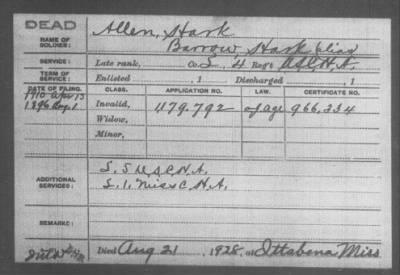 DEAD
NAME OF SOLDIER:
Allen, Hark
Barrow, Hark alias
SERVICE:
Late rank, Co. L 4 Reg't U.S.C.H.A.
TERM OF SERVICE:
Enlisted , 1 Discharged , 1
DATE OF FILING. CLASS. APPLICATION NO. LAW. CERTIFICATE NO.
1910 Apr 13
1896 Aug. 1 Invalid, 1179.792 of age 966,334
Widow,
Minor,
ADDITIONAL SERVICES:
L. 5 U.S.C.H.A.
L. 1. Miss C.H.A.
REMARKS:
Died Aug 21 , 1928, at Ittabena Miss